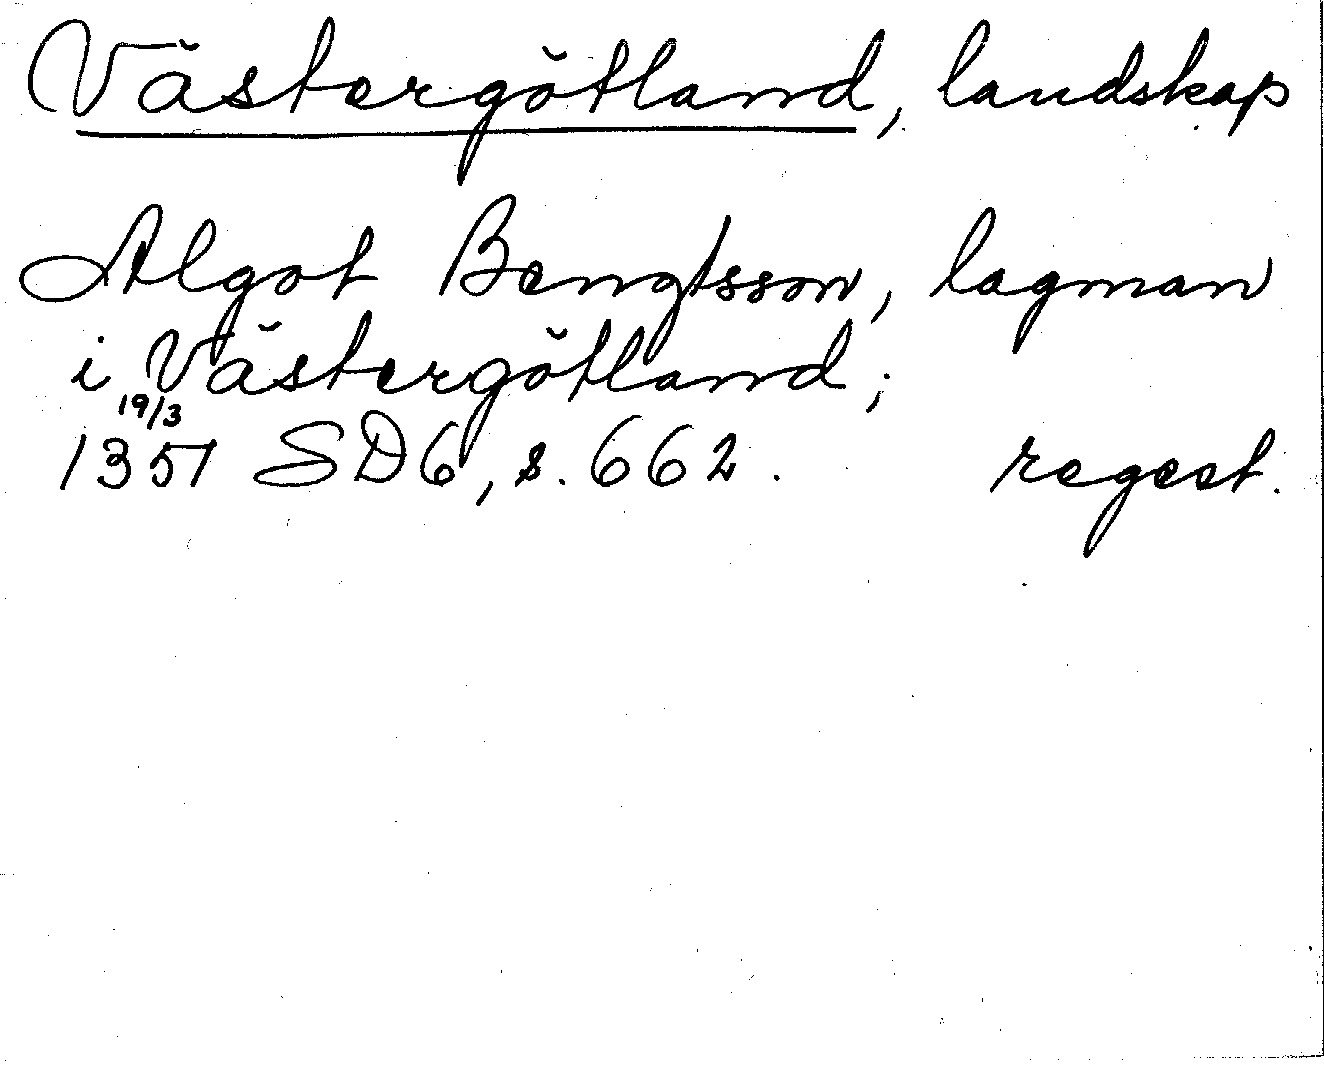 Västergötland, landskap
Algot Bengtsson, lagman
i Västergötland;
19/3
1351 SD6, s. 662. regest.